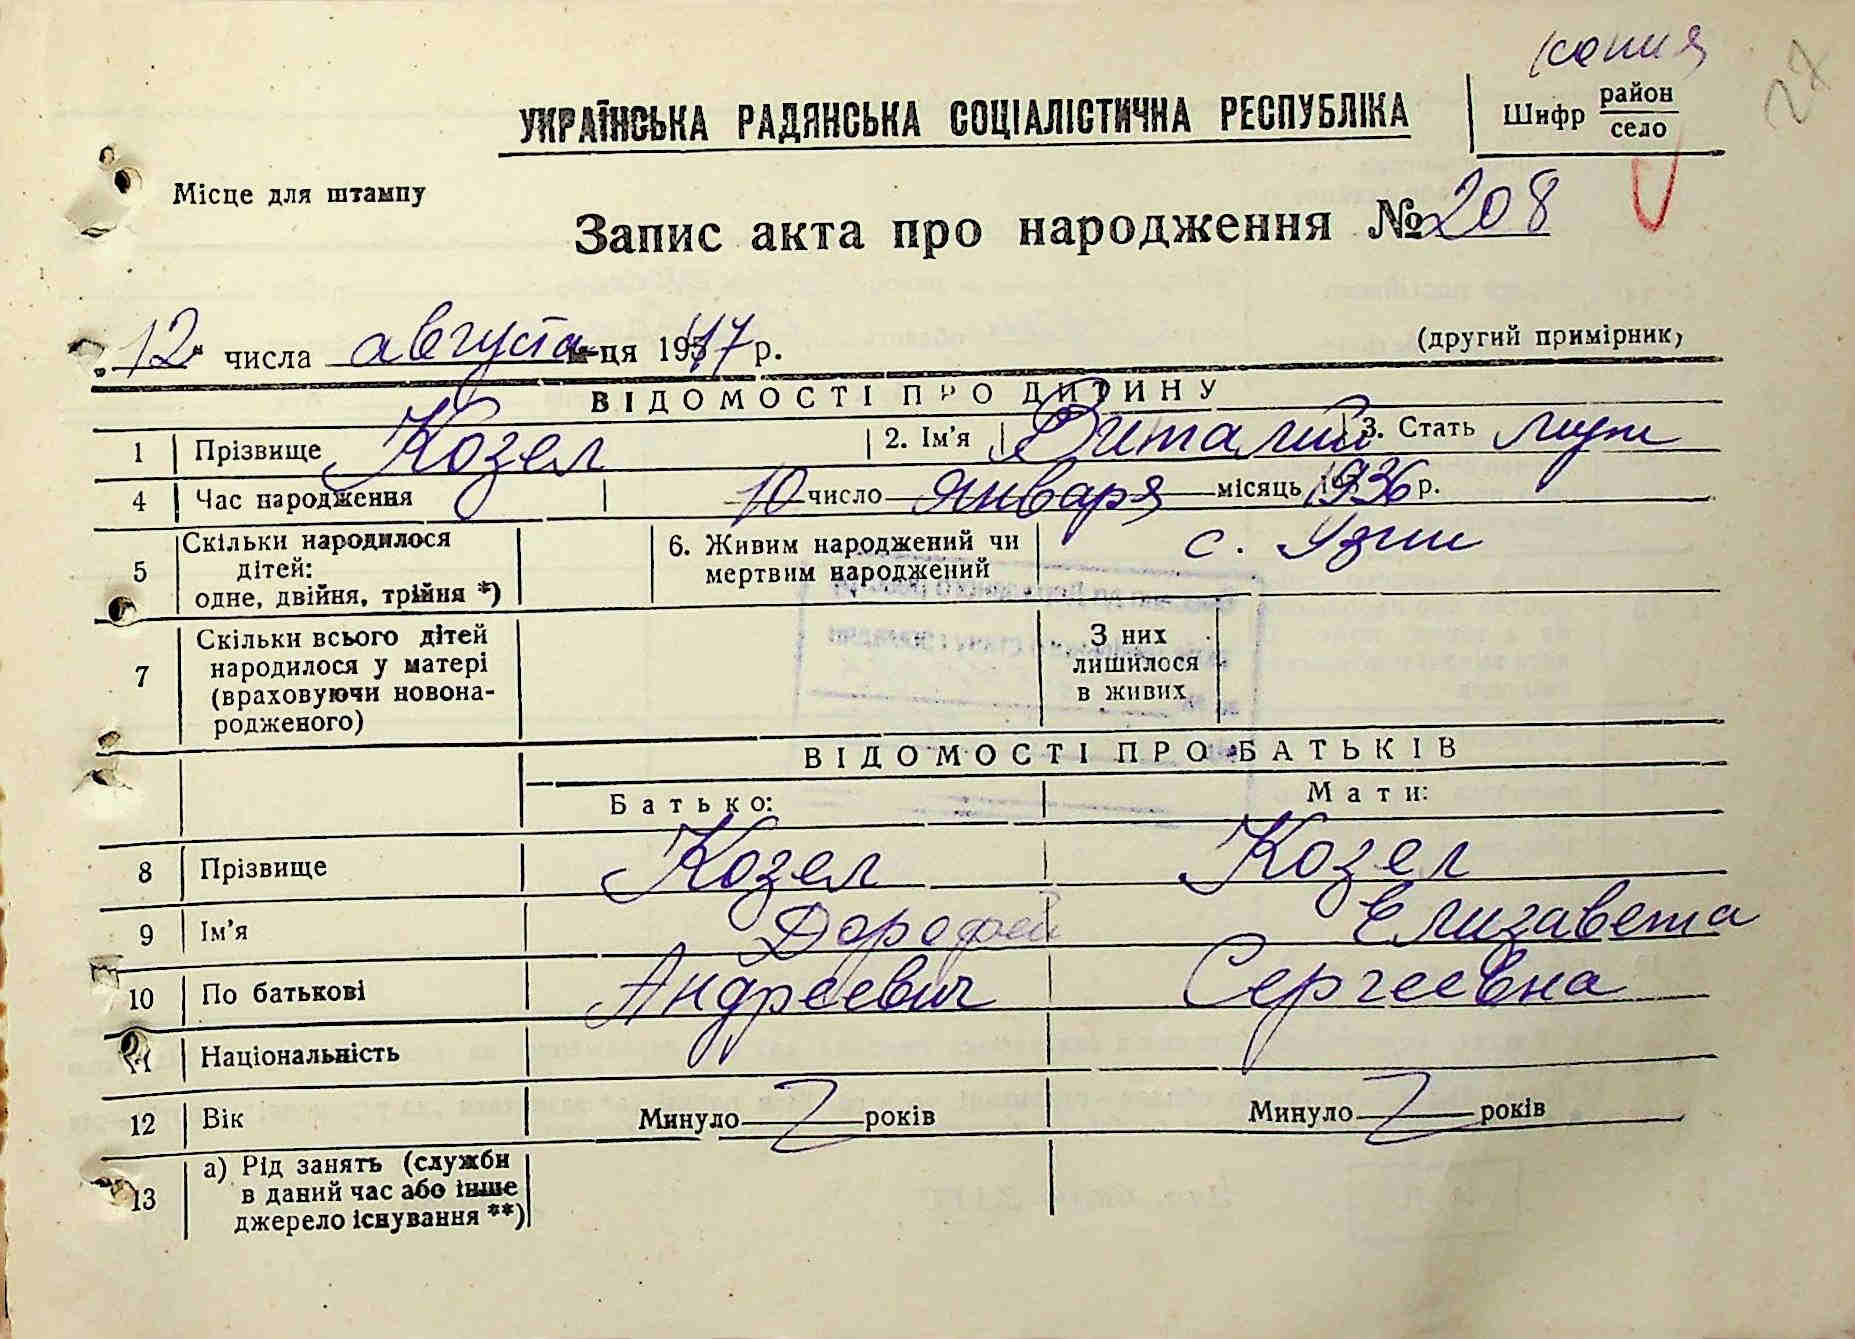 копия
27
УКРАЇНСЬКА РАДЯНСЬКА СОЦІАЛІСТИЧНА РЕСПУБЛІКА
Шифр район
село
Місце для штампу
Запис акта про народження № 208
12 числа августа м-ця 1947 р.
(другий примірник)
ВІДОМОСТІ ПРО ДИТИНУ
1 Прізвище Козел 2. Ім'я Виталий 3. Стать муж
4 Час народження 10 число января місяць 1936 р.
5 Скільки народилося дітей: одне, двійня, трійня *) 6. Живим народжений чи мертвим народжений с. Узин
7 Скільки всього дітей народилося у матері (враховуючи новонародженого) З них лишилося в живих
ВІДОМОСТІ ПРО БАТЬКІВ
Батько: Мати:
8 Прізвище Козел Козел
9 Ім'я Дорофей Елизавета
10 По батькові Андреевич Сергеевна
11 Національність
12 Вік Минуло років Минуло років
13 а) Рід занять (служби
в даний час або інше
джерело існування **)